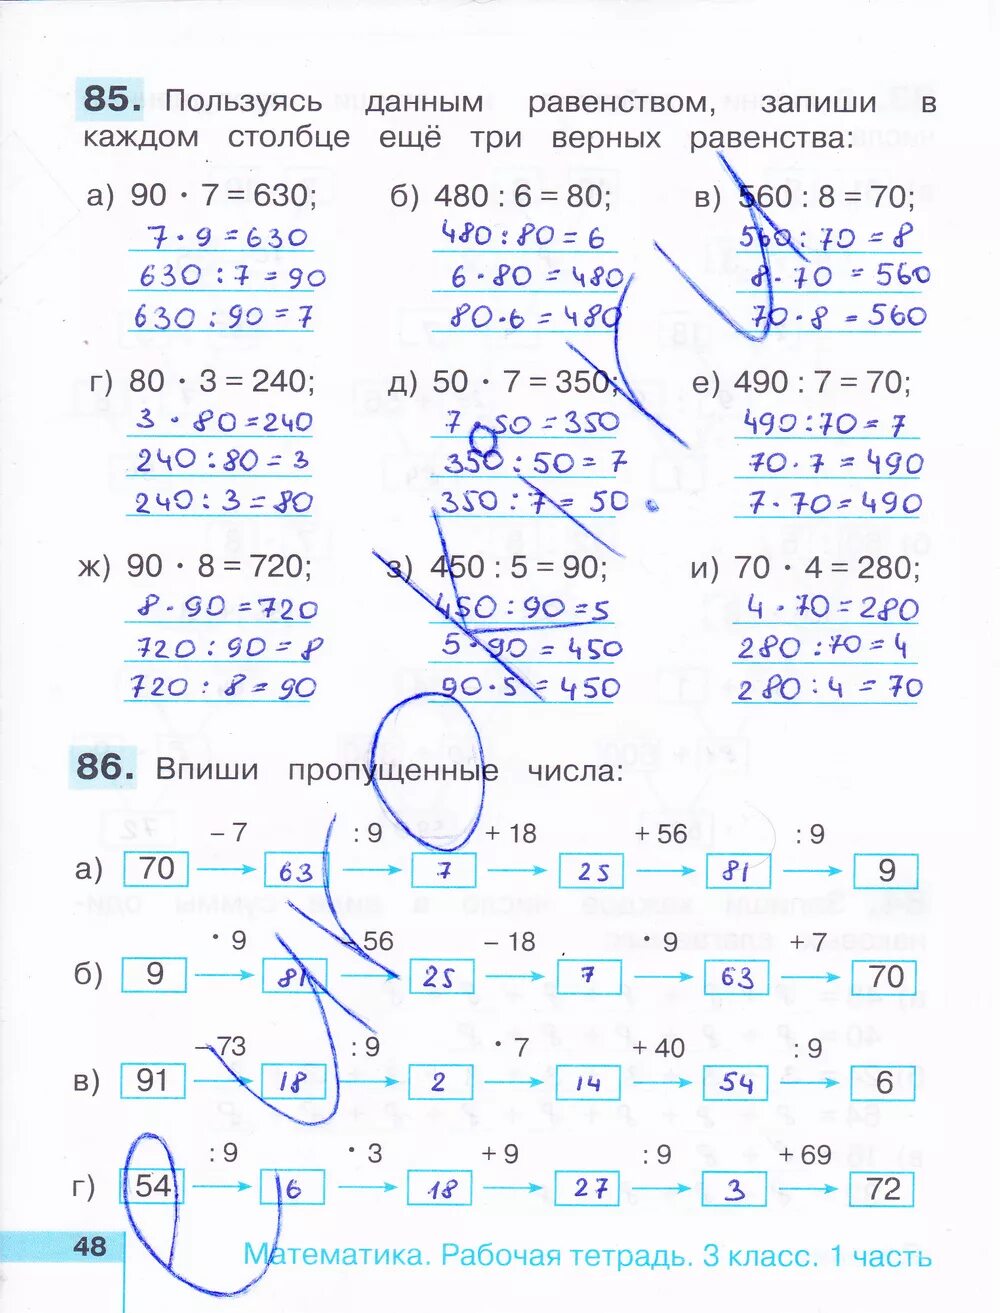 85. Пользуясь данным равенством, запиши в
каждом столбце ещё три верных равенства:
а) 90 · 7 = 630; б) 480 : 6 = 80; в) 560 : 8 = 70;
7 · 9 = 630 480 : 80 = 6 560 : 70 = 8
630 : 7 = 90 6 · 80 = 480 8 · 70 = 560
630 : 90 = 7 80 · 6 = 480 70 · 8 = 560
г) 80 · 3 = 240; д) 50 · 7 = 350; е) 490 : 7 = 70;
3 · 80 = 240 7 · 50 = 350 490 : 70 = 7
240 : 80 = 3 350 : 50 = 7 70 · 7 = 490
240 : 3 = 80 350 : 7 = 50 7 · 70 = 490
ж) 90 · 8 = 720; з) 450 : 5 = 90; и) 70 · 4 = 280;
8 · 90 = 720 450 : 90 = 5 4 · 70 = 280
720 : 90 = 8 5 · 90 = 450 280 : 70 = 4
720 : 8 = 90 90 · 5 = 450 280 : 4 = 70
86. Впиши пропущенные числа:
– 7 : 9 + 18 + 56 : 9
а) 70 63 7 25 81 9
· 9 – 56 – 18 · 9 + 7
б) 9 81 25 7 63 70
– 73 : 9 · 7 + 40 : 9
в) 91 18 2 14 54 6
: 9 · 3 + 9 : 9 + 69
г) 54 6 18 27 3 72
48 Математика. Рабочая тетрадь. 3 класс. 1 часть